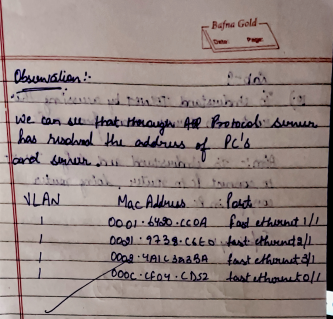 Bafna Gold
Date: Page:
Observation:-
We can see that through ARP Protocol server
has resolved the address of PC's
and server
VLAN Mac Address Ports
1 0001.6420.CC0A fast ethernet 1/1
1 fast ethernet 2/1
1 fast ethernet 3/1
1 000C.CF04.CD52 fast ethernet 0/1